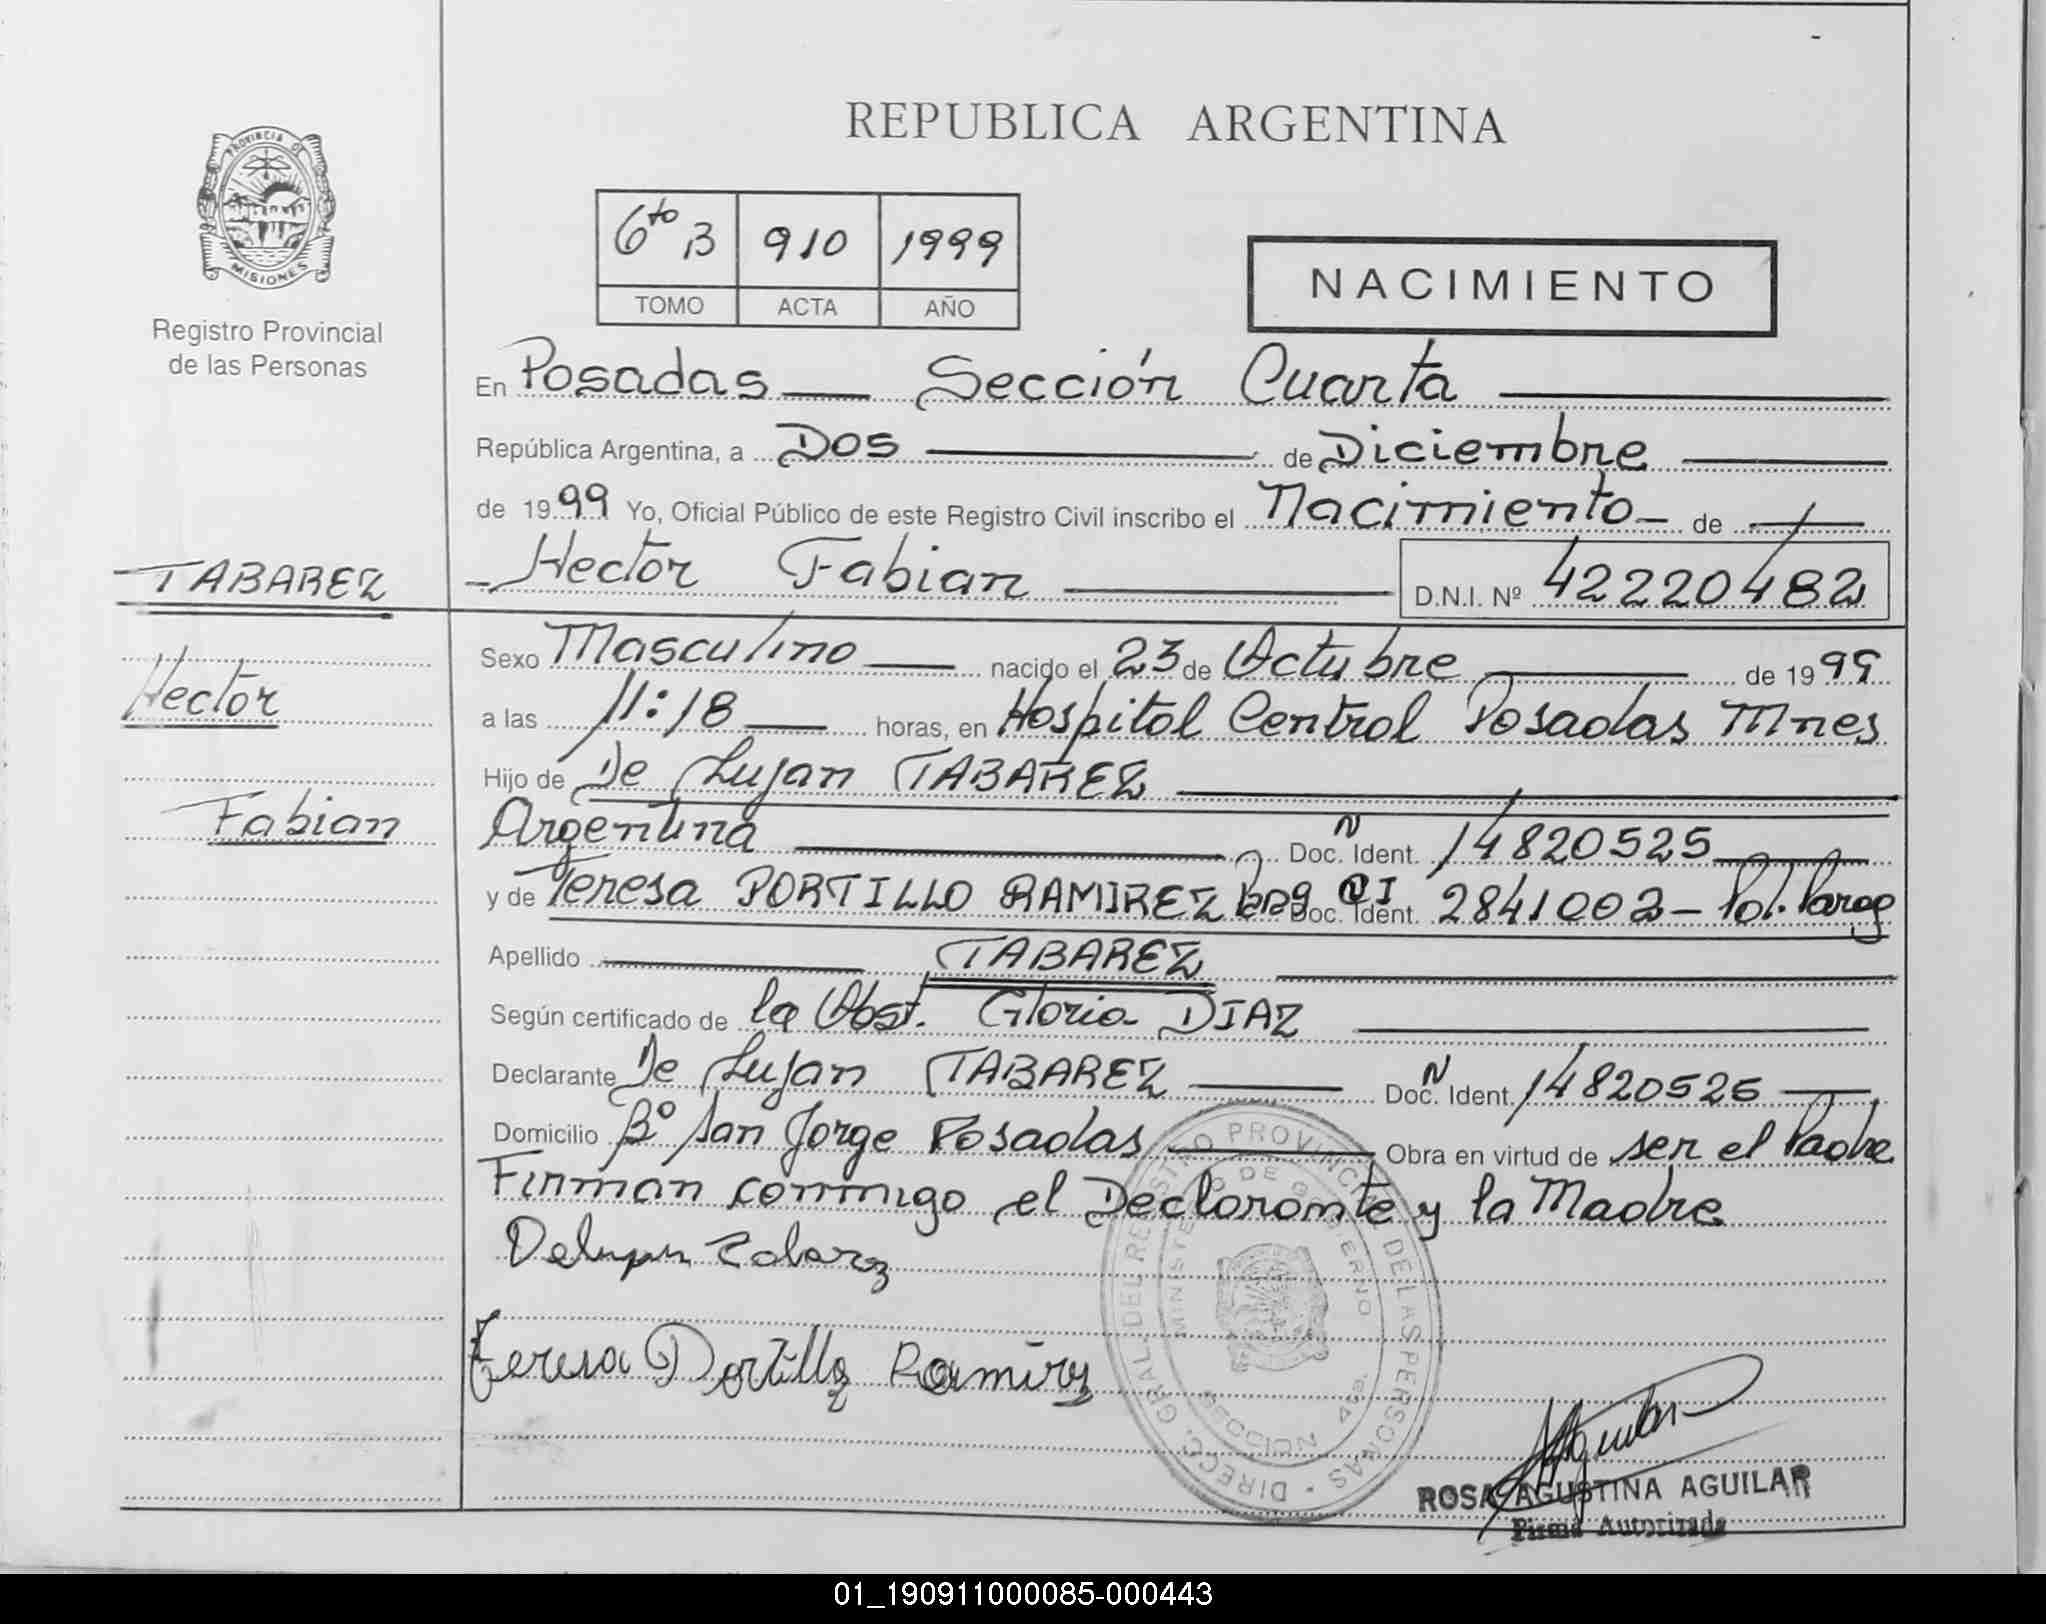 REPUBLICA ARGENTINA
PROVINCIA DE
MISIONES
Registro Provincial
de las Personas
6to B 910 1999
TOMO ACTA AÑO
NACIMIENTO
En Posadas Sección Cuarta
República Argentina, a Dos de Diciembre
de 1999 Yo, Oficial Público de este Registro Civil inscribo el Nacimiento de
Hector Fabian D.N.I. Nº 42220482
TABAREZ
Hector
Fabian
Sexo Masculino nacido el 23 de Octubre de 1999
a las 11:18 horas, en Hospital Central Posadas Mnes
Hijo de De Lujan TABAREZ
Argentina Doc. Ident. N 14820525
y de Teresa PORTILLO RAMIREZ Parg Doc. Ident. CI 2841002 - Pol. Parag
Apellido TABAREZ
Según certificado de la Obst. Gloria DIAZ
Declarante De Lujan TABAREZ Doc. Ident. N 14820525
Domicilio Bº San Jorge Posadas Obra en virtud de ser el Padre
Firman conmigo el Declarante y la Madre
Delujan Tabarez
Teresa Portillo Ramirez
DIRECC. GRAL. DEL REGISTRO PROVINCIAL DE LAS PERSONAS
MINISTERIO DE GOBIERNO
SECCION 4ta.
ROSA AGUSTINA AGUILAR
Firma Autorizada
01_190911000085-000443